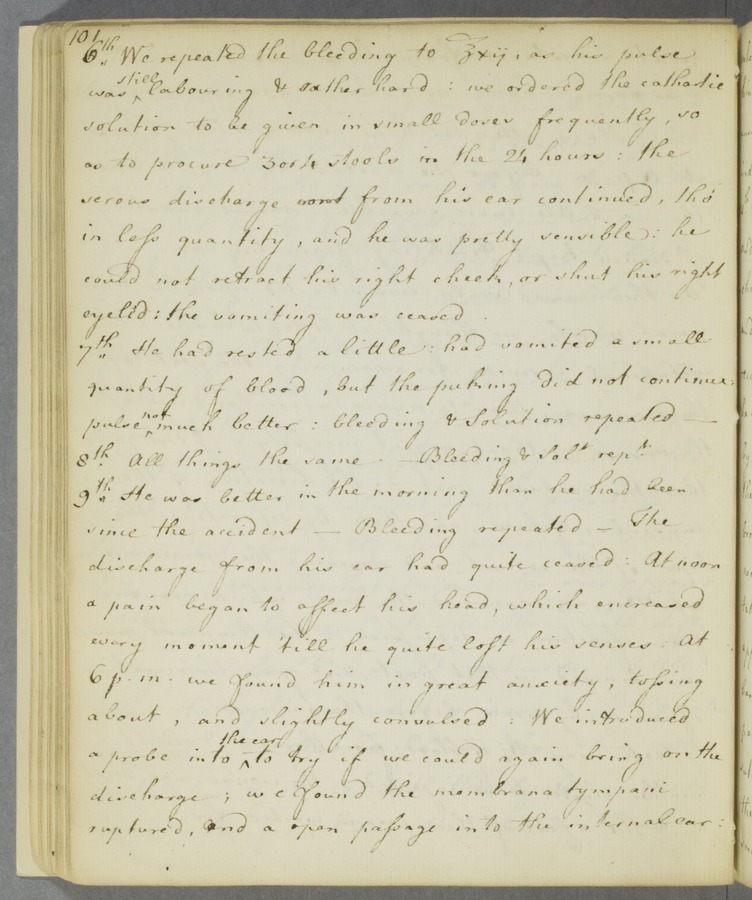 101
6th We repeated the bleeding to ℥xij, as his pulse
was still labouring & rather hard : we ordered the cathartic
solution to be given in small doses frequently, so
as to procure 3 or 4 stools in the 24 hours : the
serous discharge from his ear continued, tho'
in less quantity, and he was pretty sensible : he
could not retract his right cheek, or shut his right
eyelid : the vomiting was ceased .
7th He had rested a little : had vomited a small
quantity of blood , but the puking did not continue:
pulse not much better : bleeding & Solution repeated —
8th All things the same — Bleeding & Solt rept.
9th He was better in the morning than he had been
since the accident — Bleeding repeated — The
discharge from his ear had quite ceased : At noon
a pain began to affect his head, which encreased
every moment 'till he quite lost his senses . At
6 p. m. we found him in great anxiety, tossing
about , and slightly convulsed : We introduced
a probe into the ear to try if we could again bring on the
discharge ; we found the membrana tympani
ruptured, and a open passage into the internal ear :